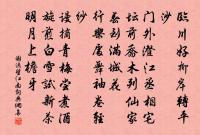 臨川好柳岸轉平
沙
門外澄江丞相宅
壇前喬木列仙家
春到滿城花
行樂處舞袖卷輕
紗
謾摘青梅嘗煮酒
旋煎白雪試新茶
明月上檐牙
望江南詞